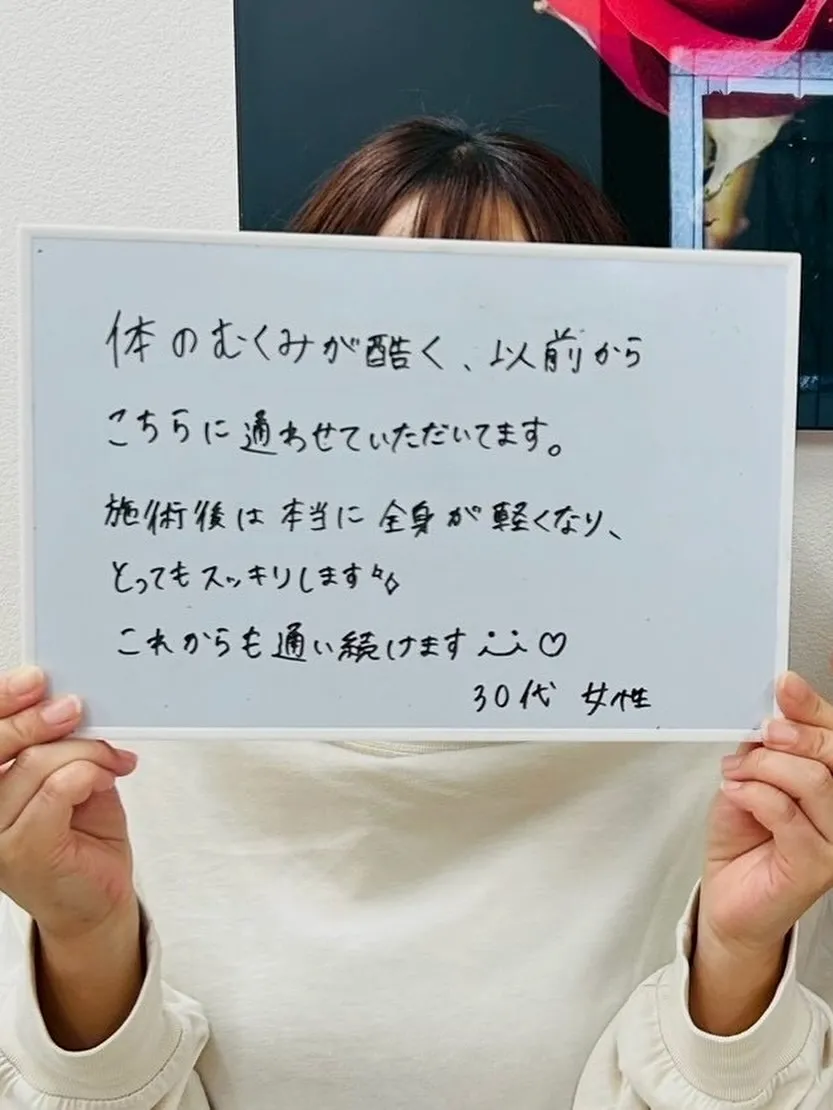 体のむくみが酷く、以前から
こちらに通わせていただいてます。
施術後は本当に全身が軽くなり、
とってもスッキリします✨
これからも通い続けます ♡
30代 女性